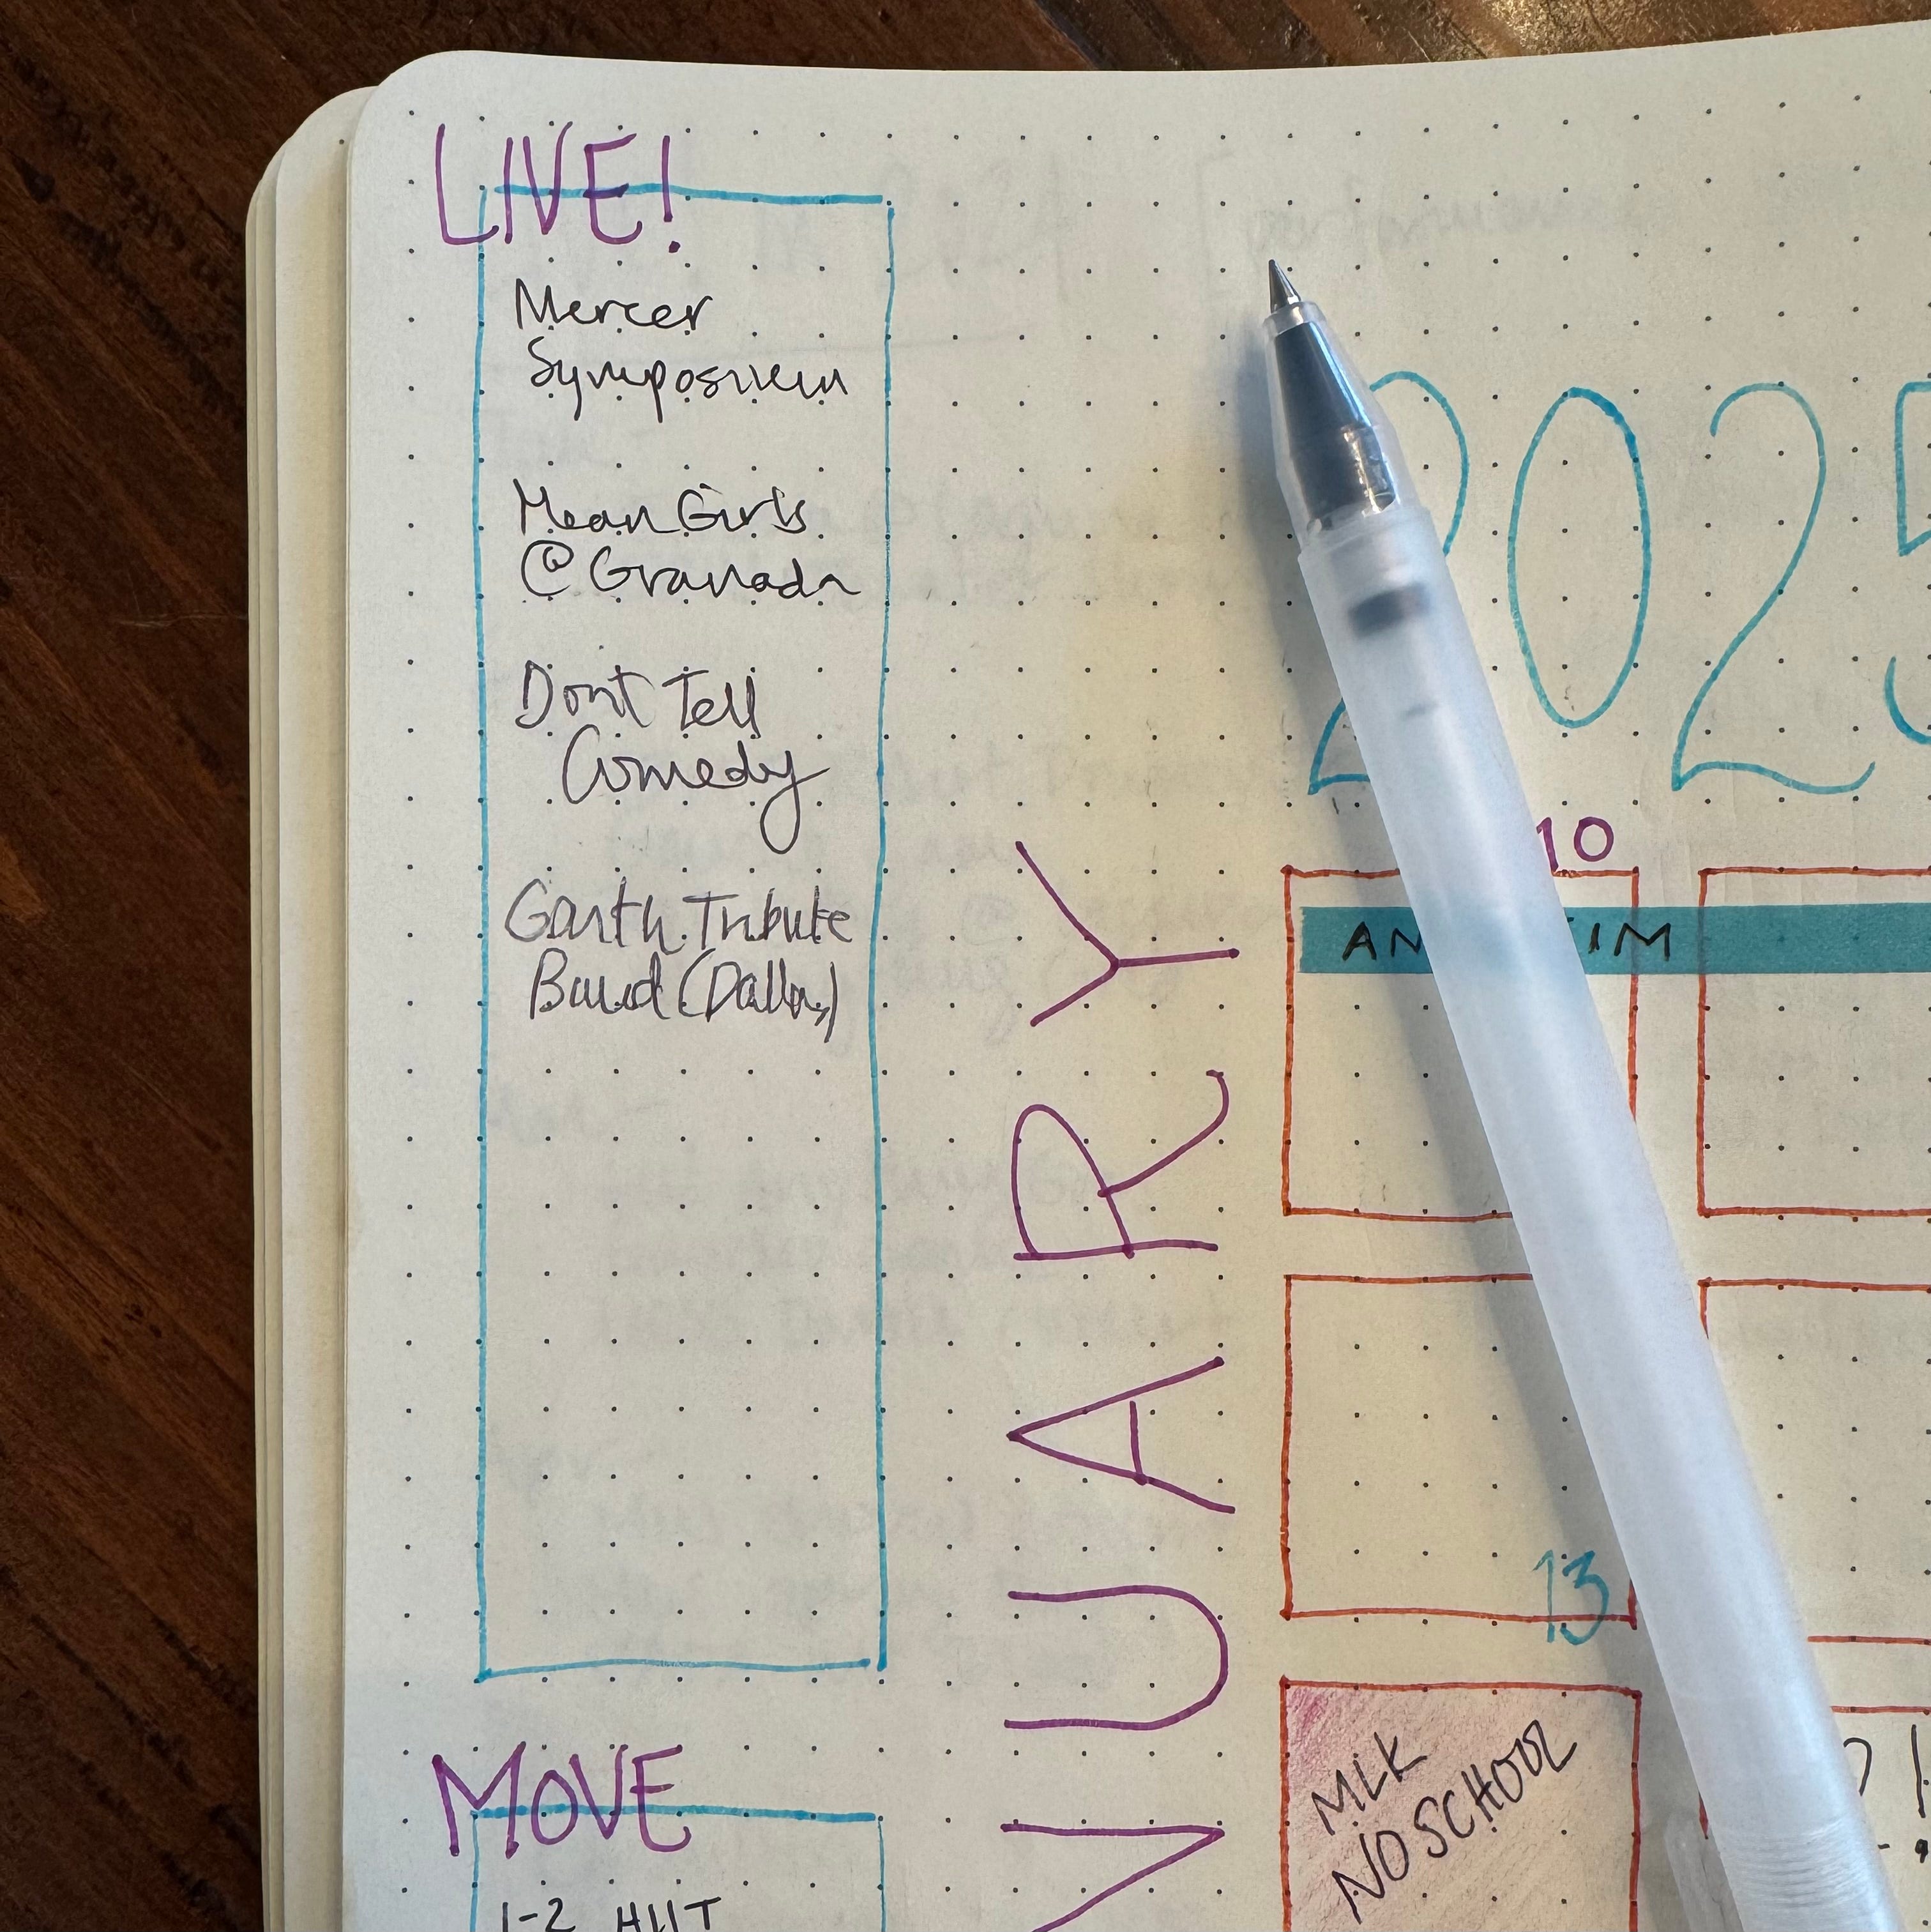 LIVE!
Mercer
Symposium
Mean Girls
@ Granada
Dont Tell
Comedy
Garth Tribute
Band (Dallas)
MOVE
1-2 HIIT
NUARY
2025
10
AN EIM
13
MLK
NO SCHOOL